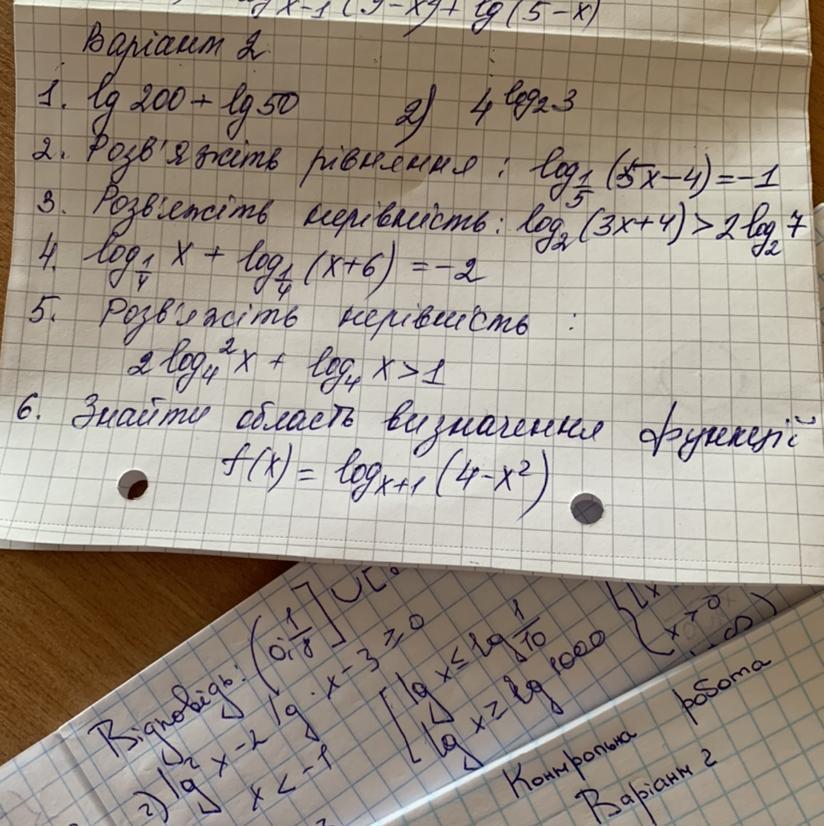 x-1 (9-x²) + lg (5-x)
Варіант 2
1. lg 200 + lg 50 2) 4^log₂3
2. Розв'яжіть рівняння : log_1/5 (5x-4) = -1
3. Розв'яжіть нерівність : log₂(3x+4) > 2log₂7
4. log_1/4 x + log_1/4 (x+6) = -2
5. Розв'яжіть нерівність :
2log₄²x + log₄ x > 1
6. Знайти область визначення функції
f(x) = log_x+1 (4-x²)
Відповідь: (0; 1/8] ∪ [
2) lg² x - 2 lg x - 3 ≥ 0
x < -1
[ lg x ≤ lg 1/10
lg x ≥ lg 1000
x > 0
Контрольна робота
Варіант 2